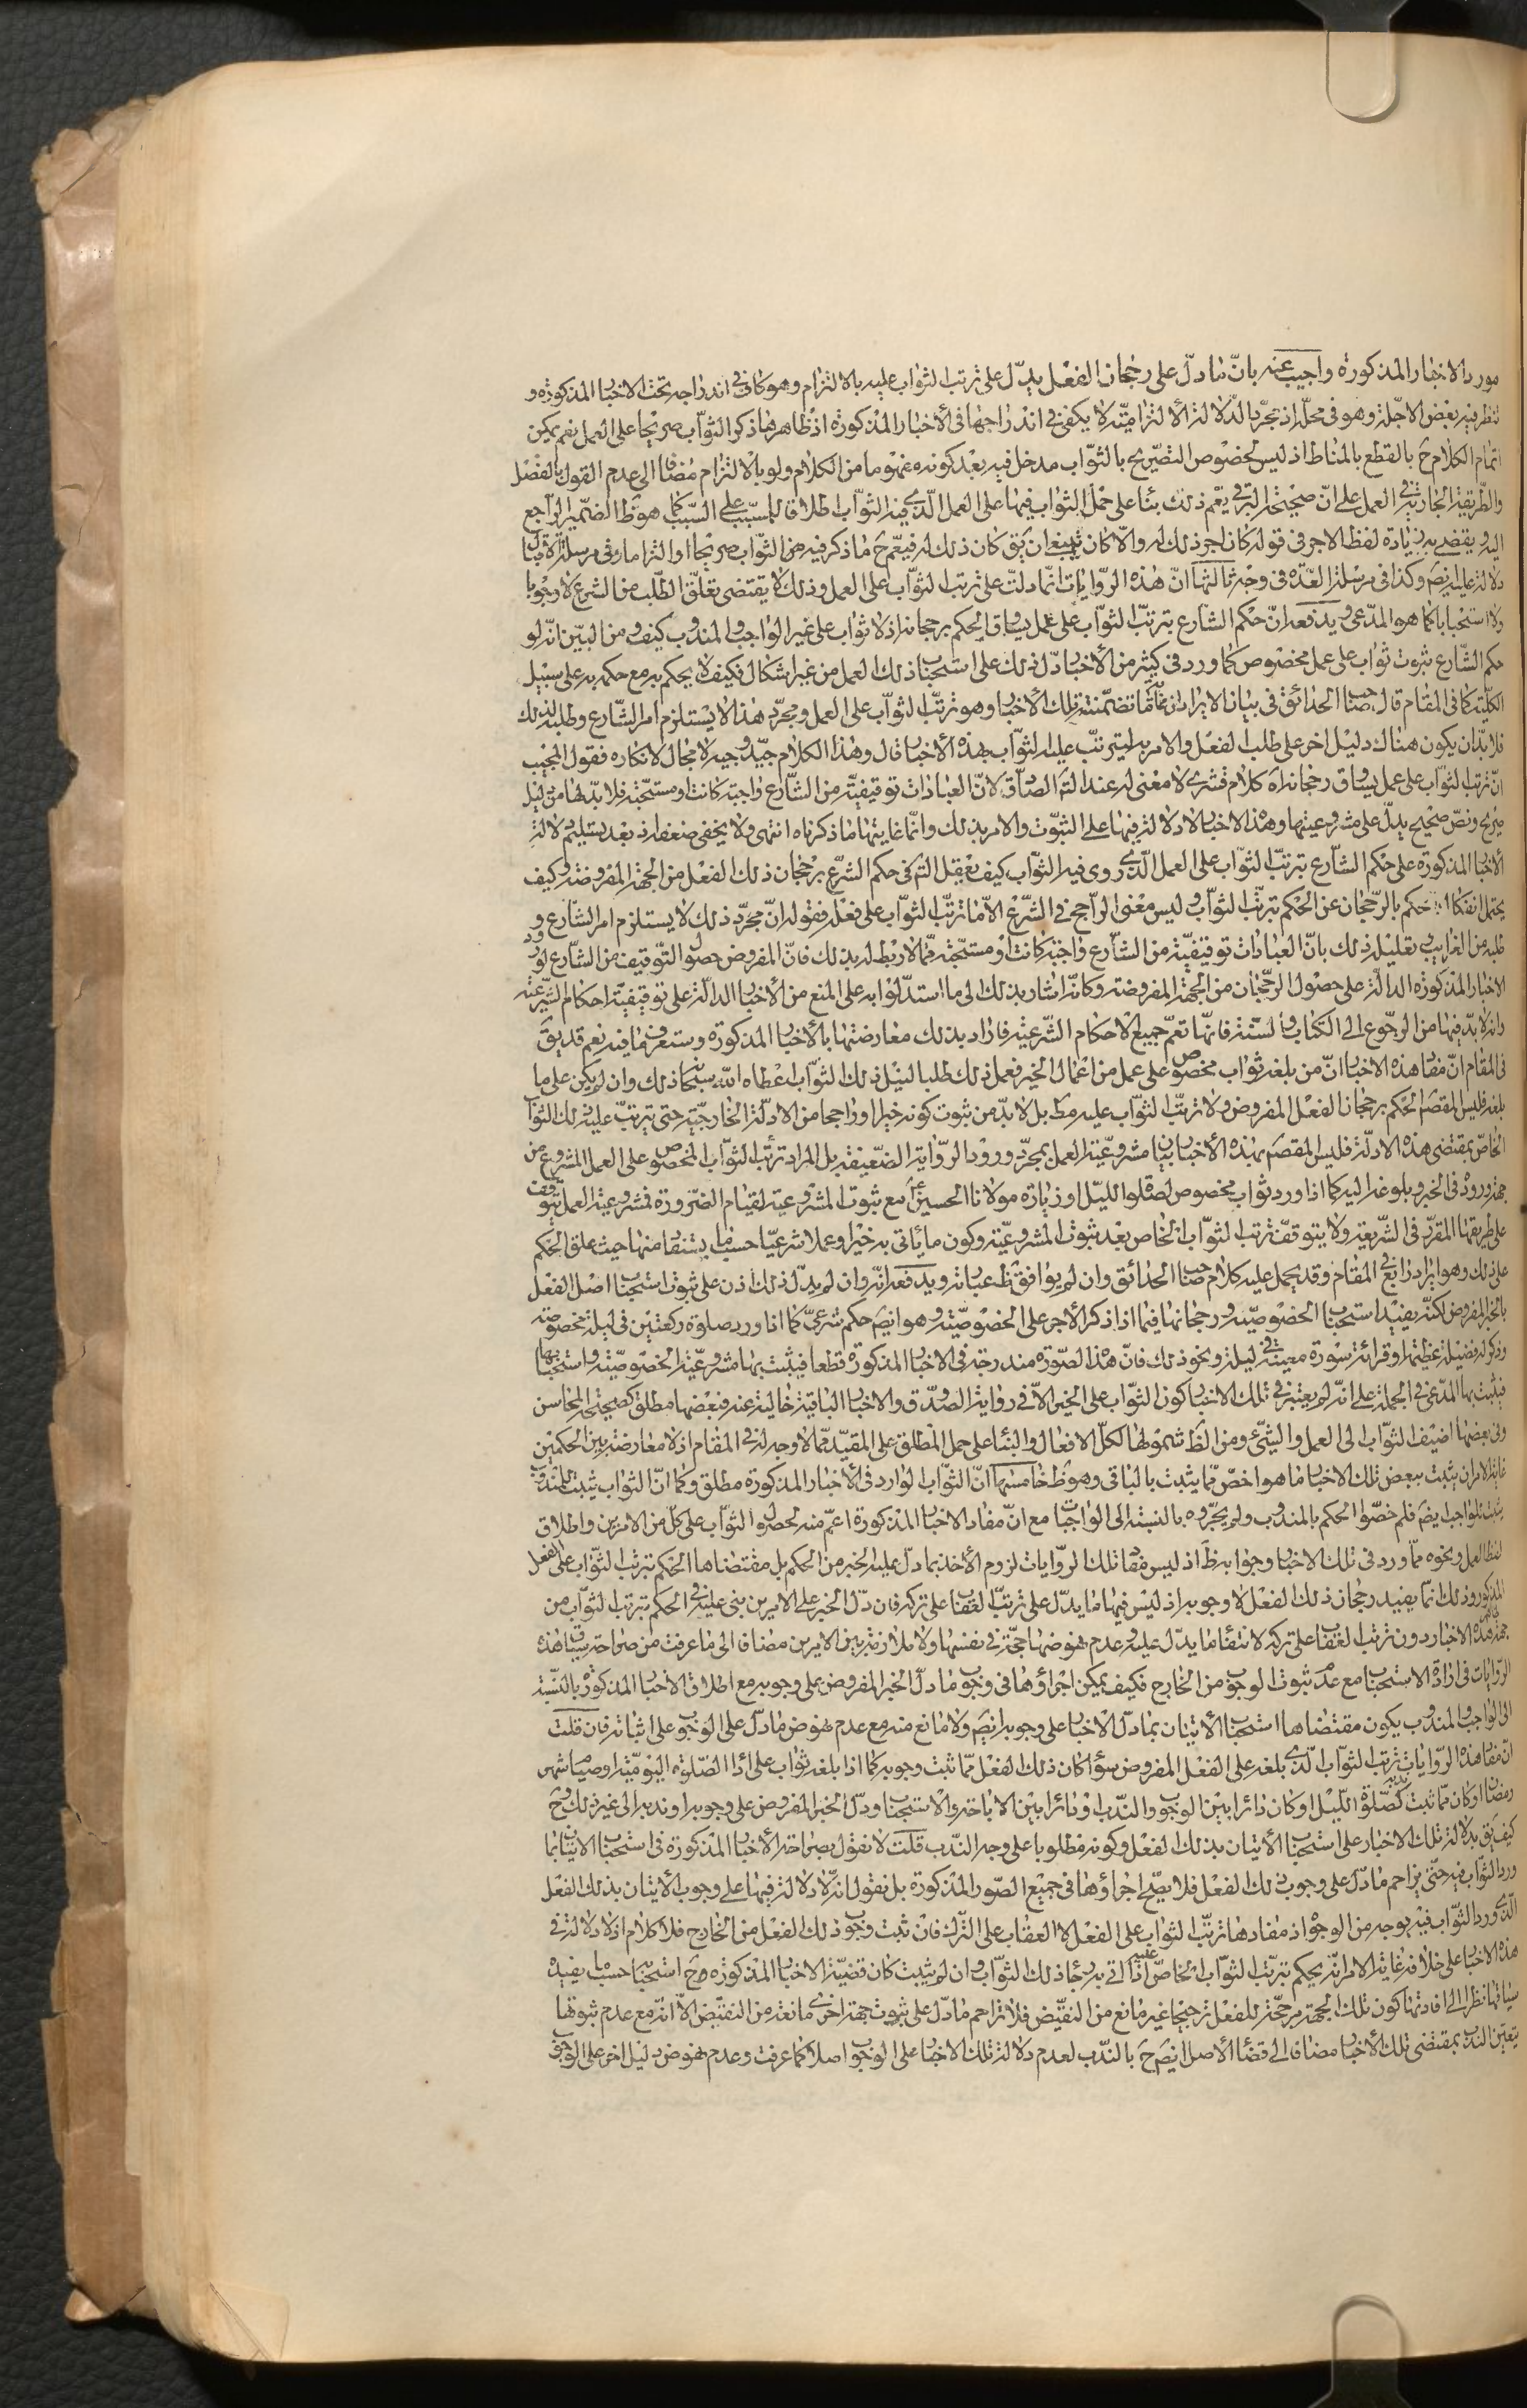 مورد الاخبار المذكورة واجيب عنه بانّ ما دلّ على رجحان الفعل يدلّ على ترتب الثواب عليه بالالتزام وهو كاف في اندراجه تحت الاخبار المذكورة و
تنظر فيه بعض الاجلة وهو في محلّه اذ مجرّد الدلالة الالتزاميّة لا يكفى في اندراجها في الأخبار المذكورة اذ ظاهرها ذكر الثوّاب صريحا على العمل نعم يمكن
اتمام الكلام ح بالقطع بالمناط اذ ليس لخصوص التصّريح بالثوّاب مدخل فيه بعد كونه مفهوما من الكلام ولو بالالتزام مضافا الى عدم القول بالفصل
والطّريقة الجارية في العمل على انّ صحيحة البرقى يعّم ذلك بناء على حمل الثواب فيها على العمل الّذى فيه الثوّاب اطلاقا للمسبّب على السّبب كما هو ظ الضّمير الرّاجع
اليه ويقضى به زيادة لفظ الاجر في قوله كان اجر ذلك له والّا كان ينبغى ان يق كان ذلك له فيعّم ح ما ذكر فيه من الثوّاب صريحا او التزاما وفي مرسلة الاقبال
دلالة عليه ايضَ وكذا في مرسلة العدّة في وجه ثالثها انّ هذه الرّوايات انّما دلّت على ترتب الثوّاب على العمل وذلك لا يقتضى تعلّق الطّلب من الشرع لا وجوبا
ولا استحبابا كما هو المدّعى ويدفعه انّ حكم الشّارع بترتبّ الثوّاب على عمل يساوق الحكم برجحانه اذ لا ثواب على غير الواجب والمندوب كيف ومن البيّن انّه لو
حكم الشّارع بثبوت ثواب على عمل مخصوص كما ورد في كثير من الأخبار دلّ ذلك على استحباب ذلك العمل من غير اشكال فكيف لا يحكم به مع حكمه به على سبيل
الكليّة كما في المقام قال صاحب الحدائق في بيان الايراد ان غاية ما تضمّنته تلك الأخبار هو ترتبّ الثوّاب على العمل ومجرّد هذا لا يستلزم امر الشّارع وطلبه لذلك
فلا بدّ ان يكون هناك دليل اخر على طلب الفعل والامر به ليترتبّ عليه الثوّاب بهذه الأخبار قال وهذا الكلام جيّد وجيه لا مجال لانكاره فقول المجيب
انّ ترتب الثوّاب على عمل يساوق رجحانه اه كلام قشرى لا معنى له عند التامّل الصّادق لانّ العبادات توقيفيّة من الشّارع واجبة كانت او مستحبّة فلا بدّ لها من دليل
صريح ونصّ صحيح يدلّ على مشروعيتها وهذه الاخبار لا دلالة فيها على الثبوّت والامر بذلك وانّما غايتها ما ذكرناه انتهى ولا يخفى ضعفه اذ بعد تسليم دلالة
الأخبار المذكورة على حكم الشّارع بترتبّ الثوّاب على العمل الّذى روى فيه الثوّاب كيف يعقل التامّل في حكم الشّرع برجحان ذلك الفعل من الجهة المفروضة وكيف
يحتمل انفكاك حكم بالرّجحان عن الحكم بترتبّ الثوّاب وليس معنى الرّاجح في الشّرع الّا ما ترتبّ الثوّاب على فعله فقوله انّ مجرّد ذلك لا يستلزم امر الشّارع و
طلبه من الغرايب وتعليله ذلك بانّ العبادات توقيفيّة من الشّارع واجبة كانت او مستحّبة ممّا لا ربط له بذلك فانّ المفروض حصول التّوقيف من الشّارع لورود
الاخبار المذكورة الدالّة على حصول الرجّحان من الجهة المفروضة وكانّه اشار بذلك الى ما استدلّوا به على المنع من الأخبار الدالّة على توقيفيّة احكام الشّرعيّة
وانّه لا بدّ فيها من الرجّوع الى الكتاب والسنّة فانّها تعمّ جميع الاحكام الشّرعيّة فاراد بذلك معارضتها بالأخبار المذكورة وستعرف ما فيه نعم قد يق
في المقام انّ مفاد هذه الاخبار انّ من بلغه ثواب مخصوص على عمل من اعمال الخير فعمل ذلك طلبا لنيل ذلك الثوّاب اعطاه الله سبحانه ذلك وان لم يكن على ما
بلغه فليس المقصَ الحكم برجحان الفعل المفروض ولا ترتبّ الثوّاب عليه مط بل لا بدّ من ثبوت كونه خيرا وراجحا من الادلّة الخارجيّة حتى يترتبّ عليه ذلك الثوّاب
الخاصّ بمقتضى هذه الادلّة فليس المقصَ بهذه الأخبار بيان مشروعيّة العمل بمجرّد ورود الرّواية الضّعيفة بل المراد ترتّب الثوّاب المخصوص على العمل المشروع من
جهة وروده في الخبر وبلوغه اليه كما اذا ورد ثواب مخصوص لصلوة الليّل او زيارة مولانا الحسين ع مع ثبوت المشروعية لقيام الضّرورة فمشروعية العمل يتوقف
على طريقها المقرّر في الشّريعة ولا يتوقفّ ترتب الثوّاب الخاص بعد ثبوت المشروعيّة وكون ما يأتى به خيرا وعملا شرعيّا حسبما يستفاد منها حيث علق الحكم
على ذلك وهو ايراد رابع في المقام وقد يحمل عليه كلام صاحب الحدائق وان لم يوافق ظ عباراته ويدفعه انّه وان لم يدلّ ذلك اذن على ثبوت استحباب اصل الفعل
بالخبر المفروض لكنّه يفيد استحباب الخصوصيّة ورجحانها فيما اذا ذكر الأجر على الخصوصيّة وهو ايضَ حكم شرعىّ كما اذا ورد صلوة ركعتين في ليلة مخصوصة
وذكر له فضيلة عظيمة او قرائة سورة معينة في ليلة ونحو ذلك فانّ هذه الصّورة مندرجة في الاخبار المذكورة قطعا فيثبت بها مشروعيّة الخصوصيّة واستحبابها
فيثبت بها المدّعى في الجملة على انّه لم يعتبر في تلك الاخبار كون الثوّاب على الخير الّا في رواية الصّدوق والاخبار الباقية خالية عنه فبعضها مطلق كصحيحة المحاسن
وفي بعضها اضيف الثوّاب الى العمل والشّئ ومن الظّ شمولها لكلّ الافعال والبناء على حمل المطلق على المقيّد ممّا لا وجه له في المقام اذ لا معارضة بين الحكمين
غاية الامر ان يثبت ببعض تلك الاخبار ما هو اخصّ ممّا يثبت بالباقى وهو ظ خامسها انّ الثوّاب الوارد في الأخبار المذكورة مطلق وكما انّ الثواب يثبت للمندوب
يثبت للواجب ايضَ فلم خصّوا الحكم بالمندوب ولم يجرّوه بالنسبة الى الواجبات مع انّ مفاد الاخبار المذكورة اعمّ منه لحصول الثوّاب على كلّ من الامرين واطلاق
لفظ العمل ونحوه ممّا ورد في تلك الاخبار وجوابه ظّ اذ ليس مفاد تلك الرّوايات لزوم الأخذ بما دلّ عليه الخبر من الحكم بل مقتضاها الحكم بترتب الثوّاب على الفعل
المذكور وذلك انّما يفيد رجحان ذلك الفعل لا وجوبه اذ ليس فيها ما يدّل على ترتبّ العقاب على تركه فان دلّ الخبر على الامرين بنى عليه في الحكم بترتب الثوّاب من
جهة هذه الاخبار دون ترتب العقاب على تركه لانتفاء ما يدّل عليه وعدم نهوضها حجّة في نفسها ولا ملازمة بين الامرين مضافا الى ما عرفت من صراحة سياق هذه
الرّوايات في ارادة الاستحباب مع عدم ثبوت الوجوب من الخارج فكيف يمكن اجراؤها في وجوب ما دلّ الخبر المفروض على وجوبه مع اطلاق الأخبار المذكورة بالنّسبة
الى الواجب والمندوب يكون مقتضاها استحباب الأتيان بما دلّ الأخبار على وجوبه ايضَ ولا مانع منه مع عدم نهوض ما دلّ على الوجوب على اثباته فان قلت
انّ مفاد هذه الرّوايات ترتب الثوّاب الّذى بلغه على الفعل المفروض سؤا كان ذلك الفعل ممّا ثبت وجوبه كما اذا بلغه ثواب على اداء الصّلوة اليوميّة او صيام شهر
رمضان او كان ممّا ثبت ندبه كصّلوة اللّيل او كان دائرا بين الوجوب والنّدب او دائرا بين الاباحة والاستحباب ودلّ الخبر المفروض على وجوبه او ندبه الى غير ذلك وح
كيف يق بدلالة تلك الاخبار على استحباب الأتيان بذلك الفعل وكونه مطلوبا على وجه النّدب قلت لا نقول بصراحة الأخبار المذكورة في استحباب الاتيان بما
ورد الثّواب فيه حتّى يزاحم ما دلّ على وجوب ذلك الفعل فلا يصّح اجراؤها في جميع الصّور المذكورة بل نقول انّه لا دلالة فيها على وجوب الأتيان بذلك الفعل
الّذى ورد الثّواب فيه بوجه من الوجوه اذ مفادها ترتبّ الثواب على الفعل لا العقاب على التّرك فان ثبت وجوب ذلك الفعل من الخارج فلا كلام اذ لا دلالة في
هذه الاخبار على خلافه غاية الامر انّه يحكم بترتبّ الثوّاب الخاصّ عليه اذا اتى به رجاء ذلك الثوّاب وان لم يثبت كان قضيّة الاخبار المذكورة ح استحبابه حسبما يفيده
سياقها نظرا الى افادتها كون تلك الجهة مرجّحة للفعل ترجيحا غير مانع من النقّيض فلا تزاحم ما دلّ على ثبوت جهة اخرى مانعة من النقيّض الّا انّه مع عدم ثبوتها
يتعيّن الندب بمقتضى تلك الأخبار مضافا الى قضاء الأصل ايضَ ح بالنّدب لعدم دلالة تلك الاخبار على الوجوب اصلا كما عرفت وعدم نهوض دليل اخر على الوجوب